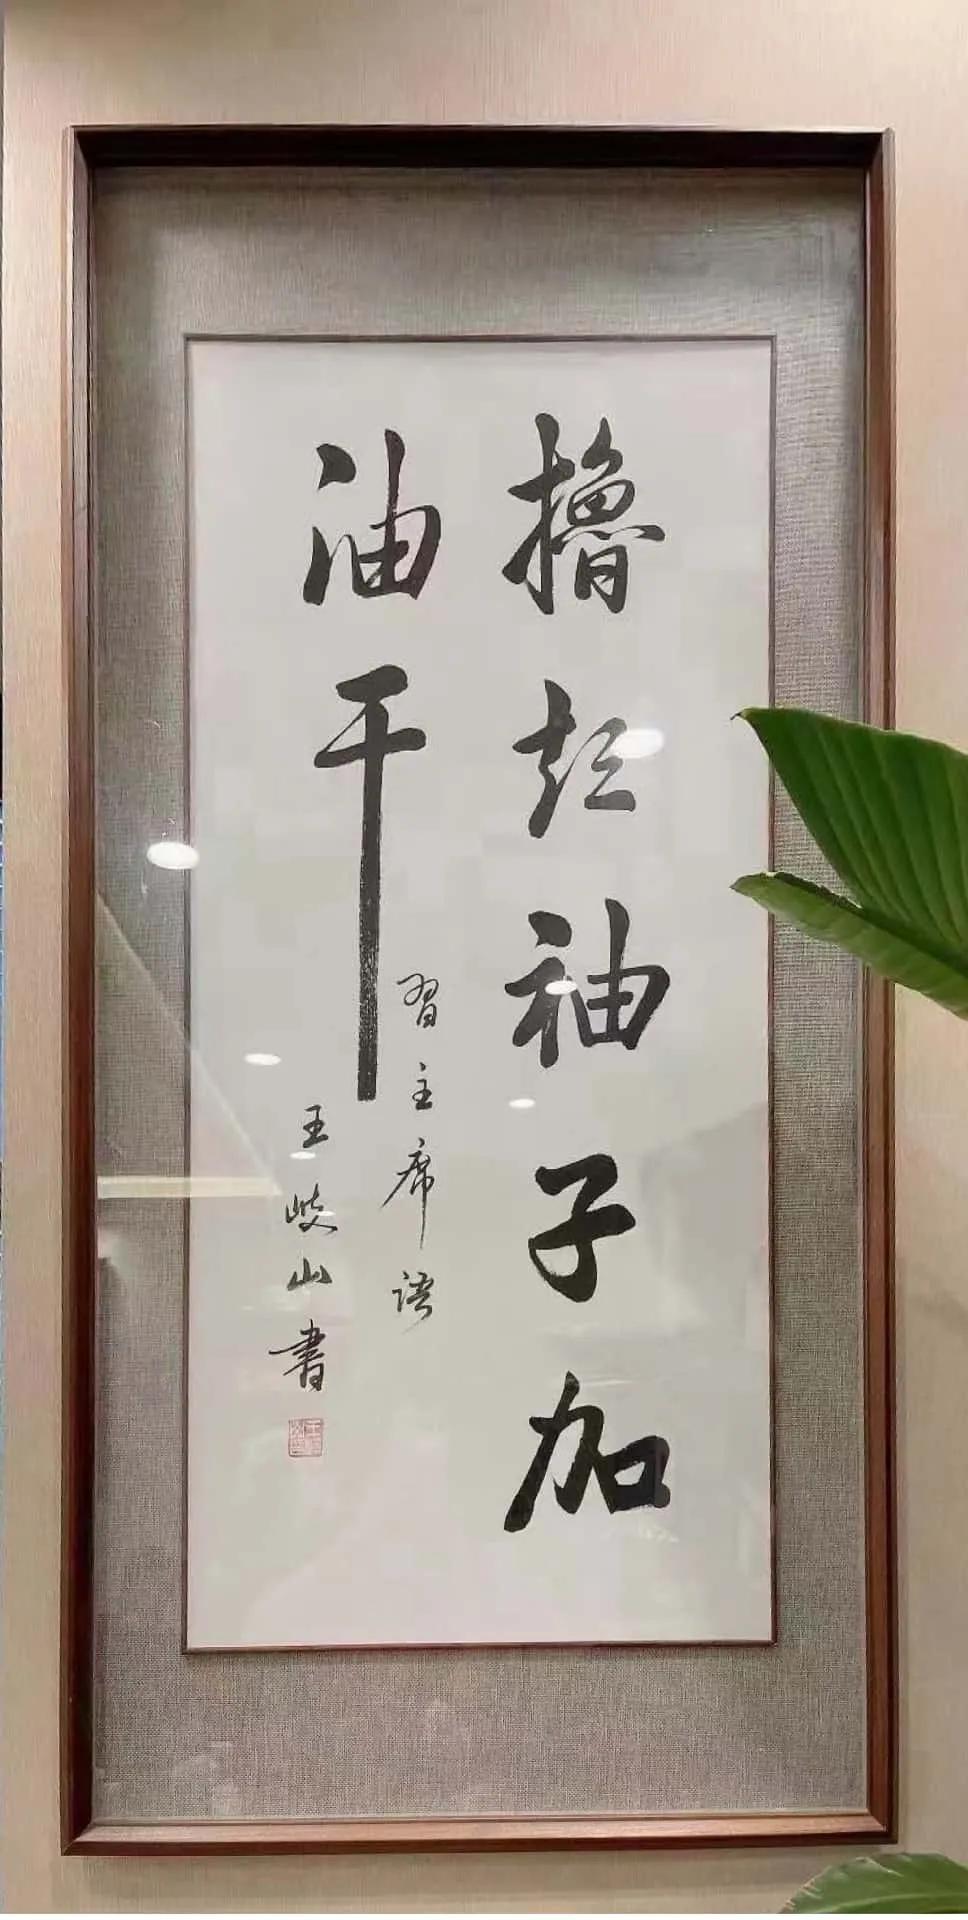 擼起袖子加
油干
習主席語
王岐山書